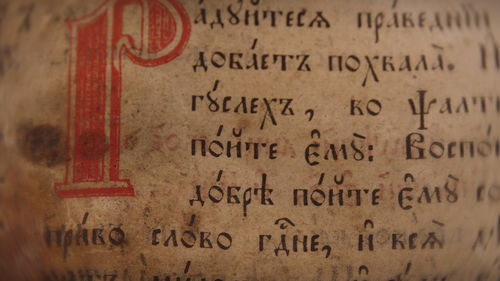 Ра́дꙋйтесѧ пра́веднїи
добаетъ похвала̀.
гꙋ́слехъ, во ѱалти
по́йте є҆мꙋ̀: Воспо
до́брѣ по́йте є҆мꙋ̀ со
пра́во сло́во гдⷭ҇не, и҆ всѧ̑